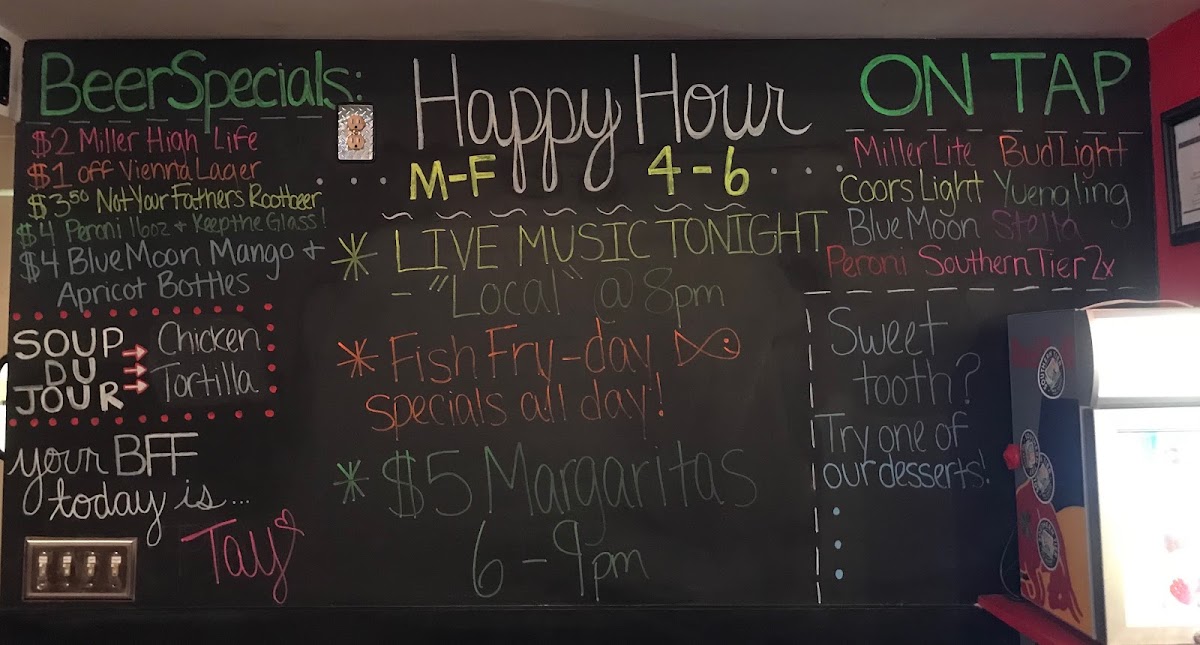 Beer Specials:
$2 Miller High Life
$1 off Vienna Lager
$3.50 Not Your Fathers Rootbeer
$4 Peroni 16oz + Keep the Glass!
$4 Blue Moon Mango +
Apricot Bottles
SOUP
DU
JOUR
Chicken
Tortilla
your BFF
today is...
Tay
Happy Hour
M-F 4-6
LIVE MUSIC TONIGHT
- "Local" @ 8pm
Fish Fry-day
specials all day!
$5 Margaritas
6-9pm
ON TAP
Miller Lite Bud Light
Coors Light Yuengling
Blue Moon Stella
Peroni Southern Tier 2x
Sweet
tooth?
Try one of
our desserts!